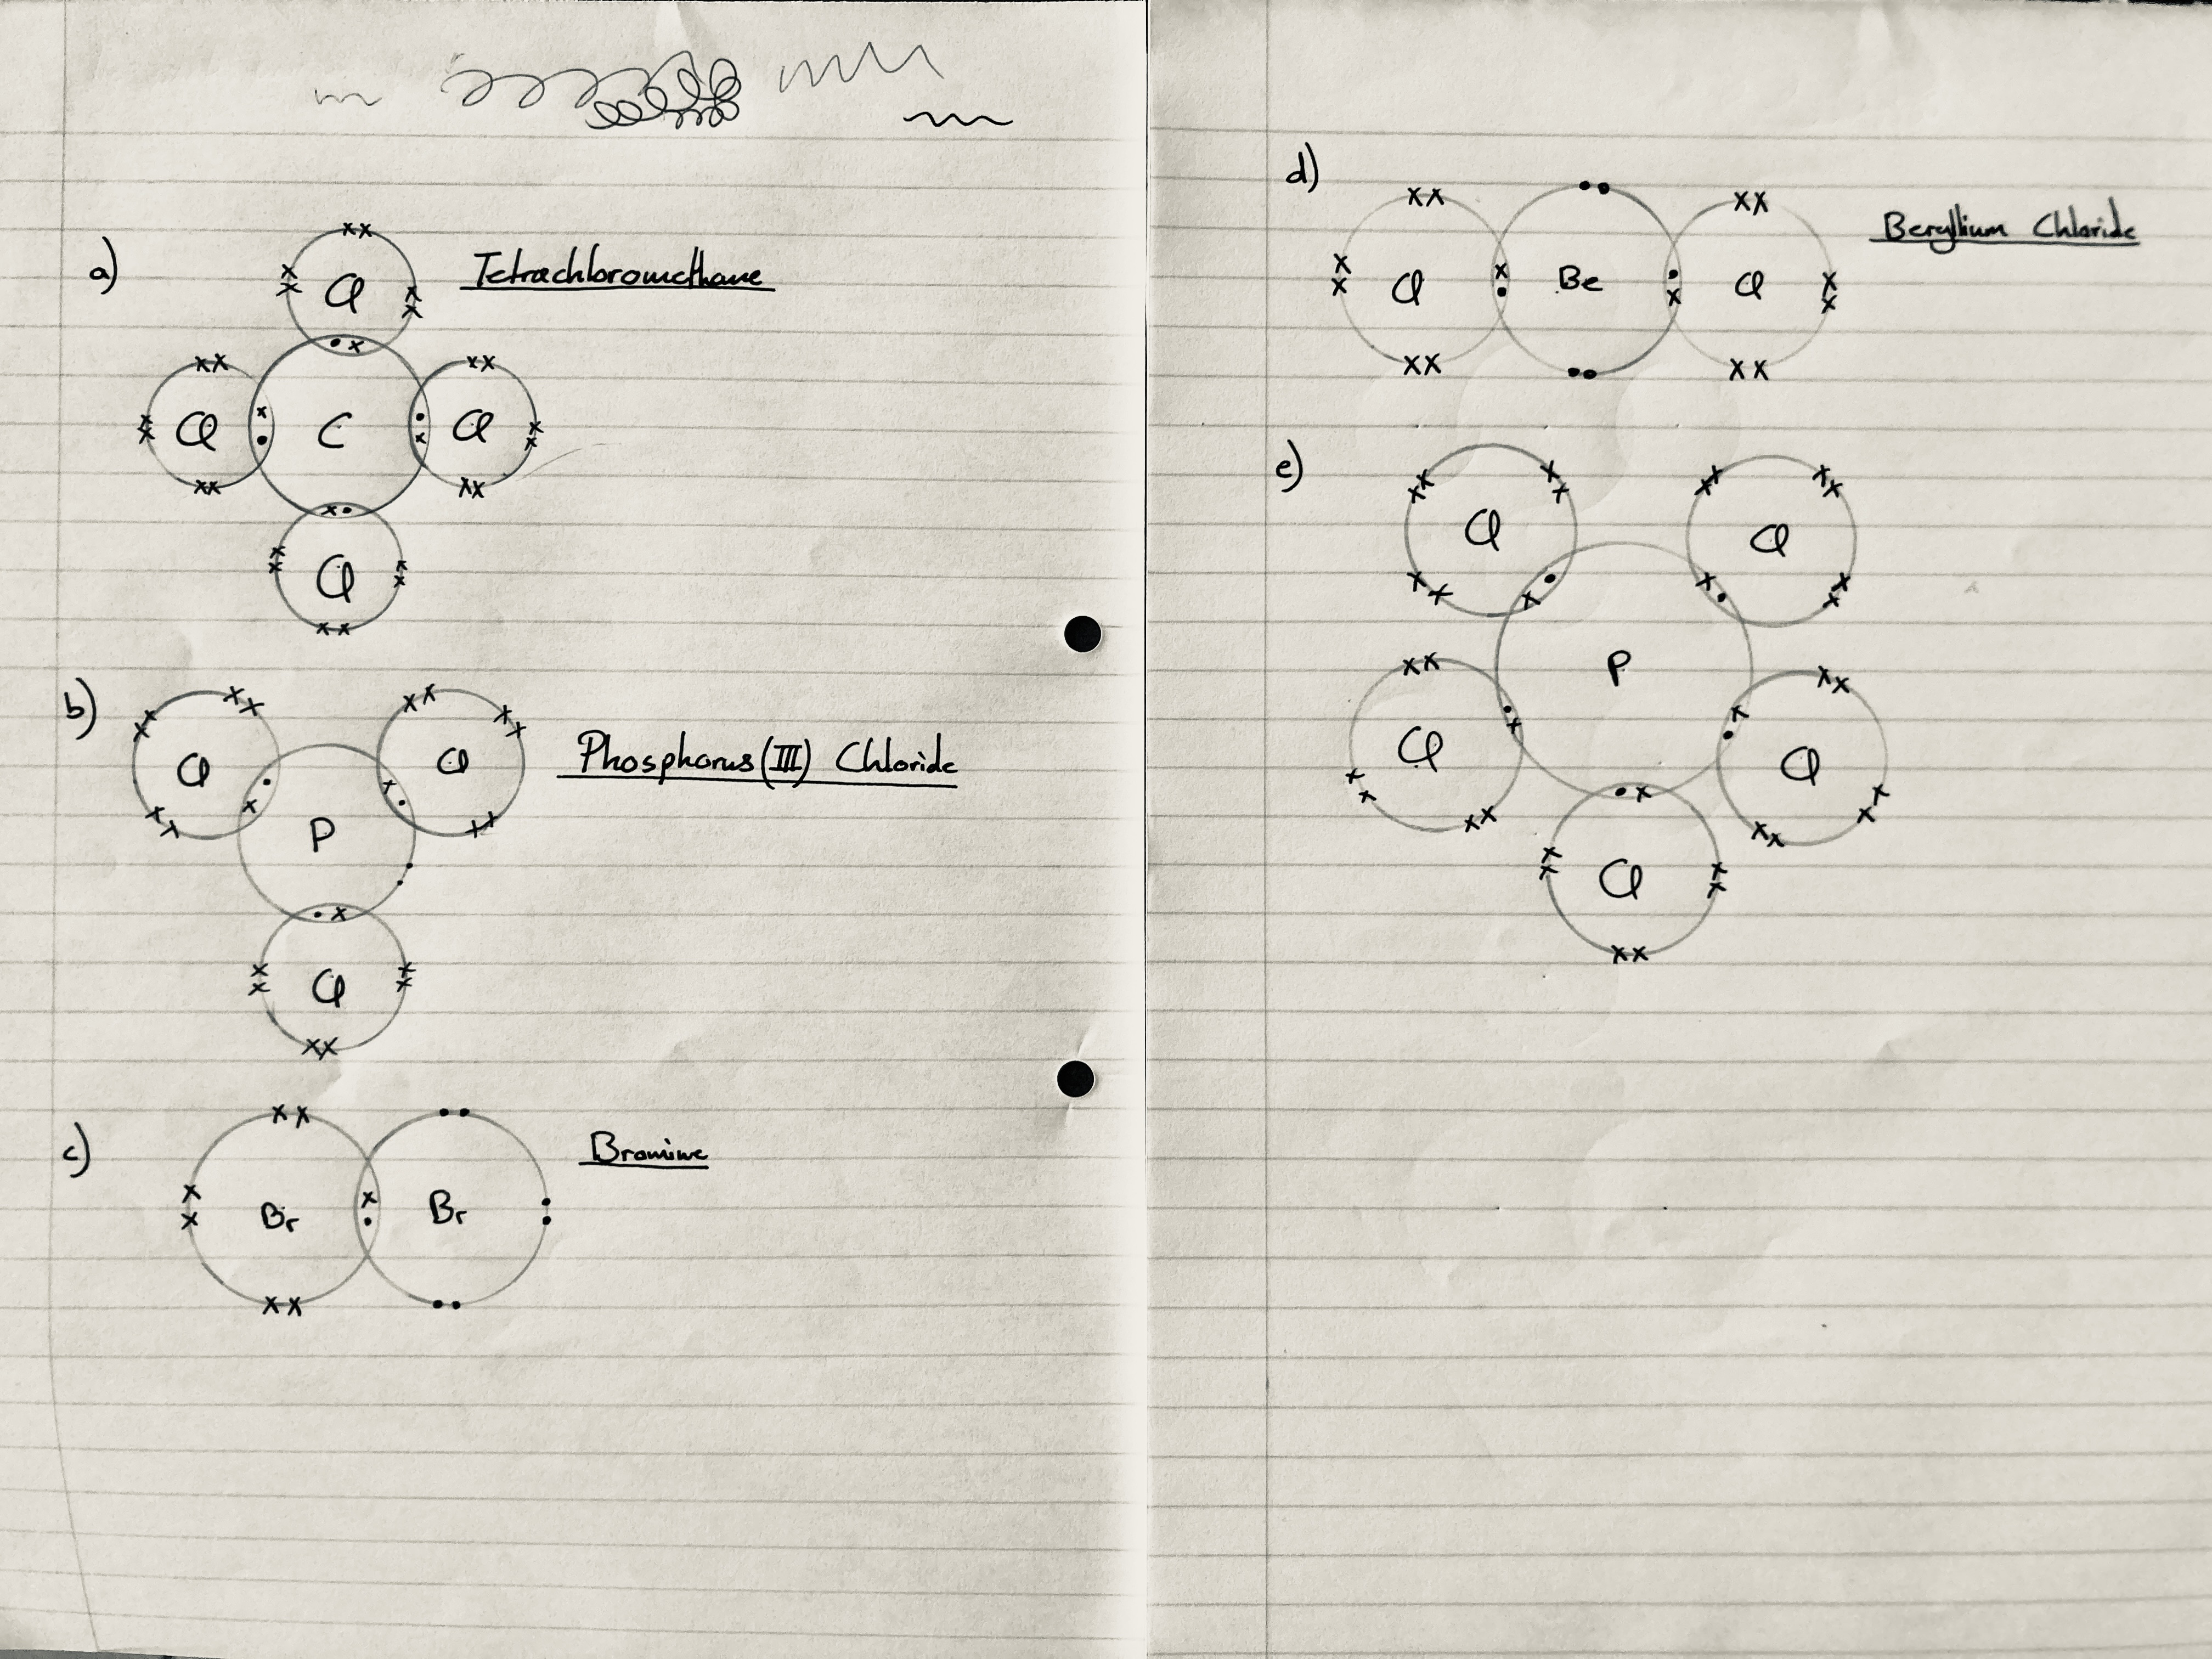 a)
Tetrachloromethane
Cl
Cl C Cl
Cl
b)
Cl Cl
Phosphorus(III) Chloride
P
Cl
c)
Bromine
Br Br
d)
Beryllium Chloride
Cl Be Cl
e)
Cl Cl
P
Cl Cl
Cl